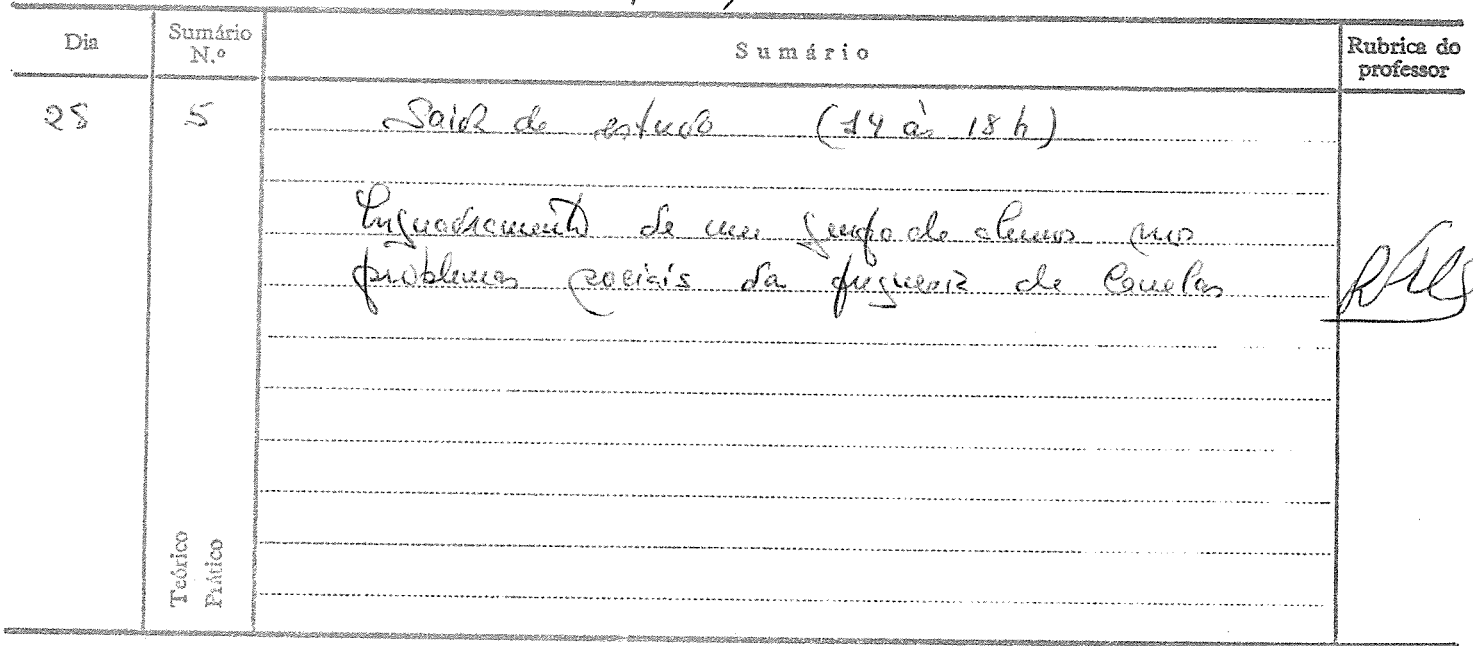 Dia
Sumário N.º
Sumário
Rubrica do professor
28
5
Saida de estudo (14 às 18 h)
Enquadramento de um grupo de alunos nos
problemas sociais da freguesia de Canelas
Teórico
Prático